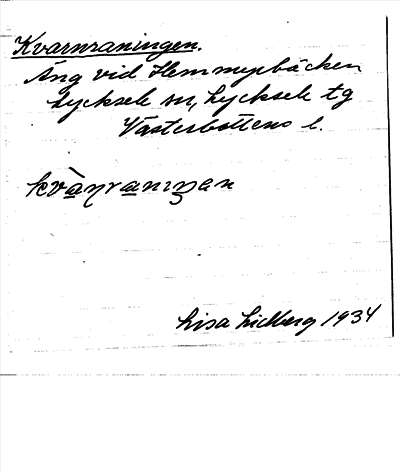 Kvarnraningen.
Äng vid Hemmyrbäcken
Lycksele sn, Lycksele tg
Västerbottens l.
kvàn̢ranıŋan
Lisa Lidberg 1934